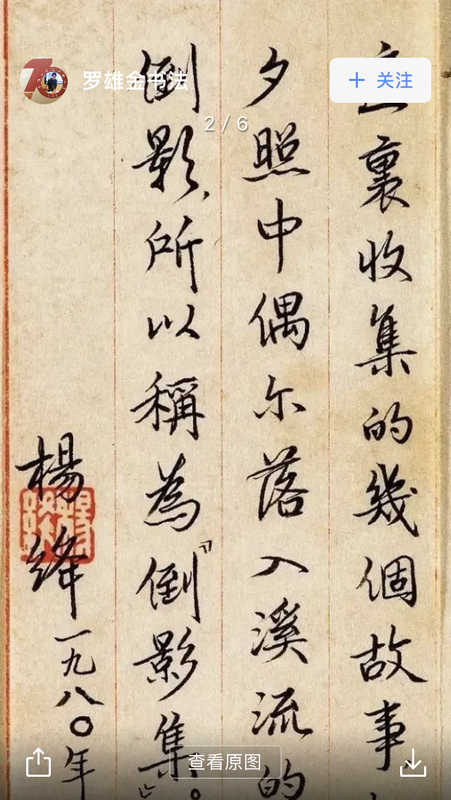 罗雄金书法
+ 关注
2 / 6
裏收集的幾個故事、
夕照中偶尔落入溪流的
倒影，所以稱為『倒影集』。
楊絳
一九八〇年
查看原图